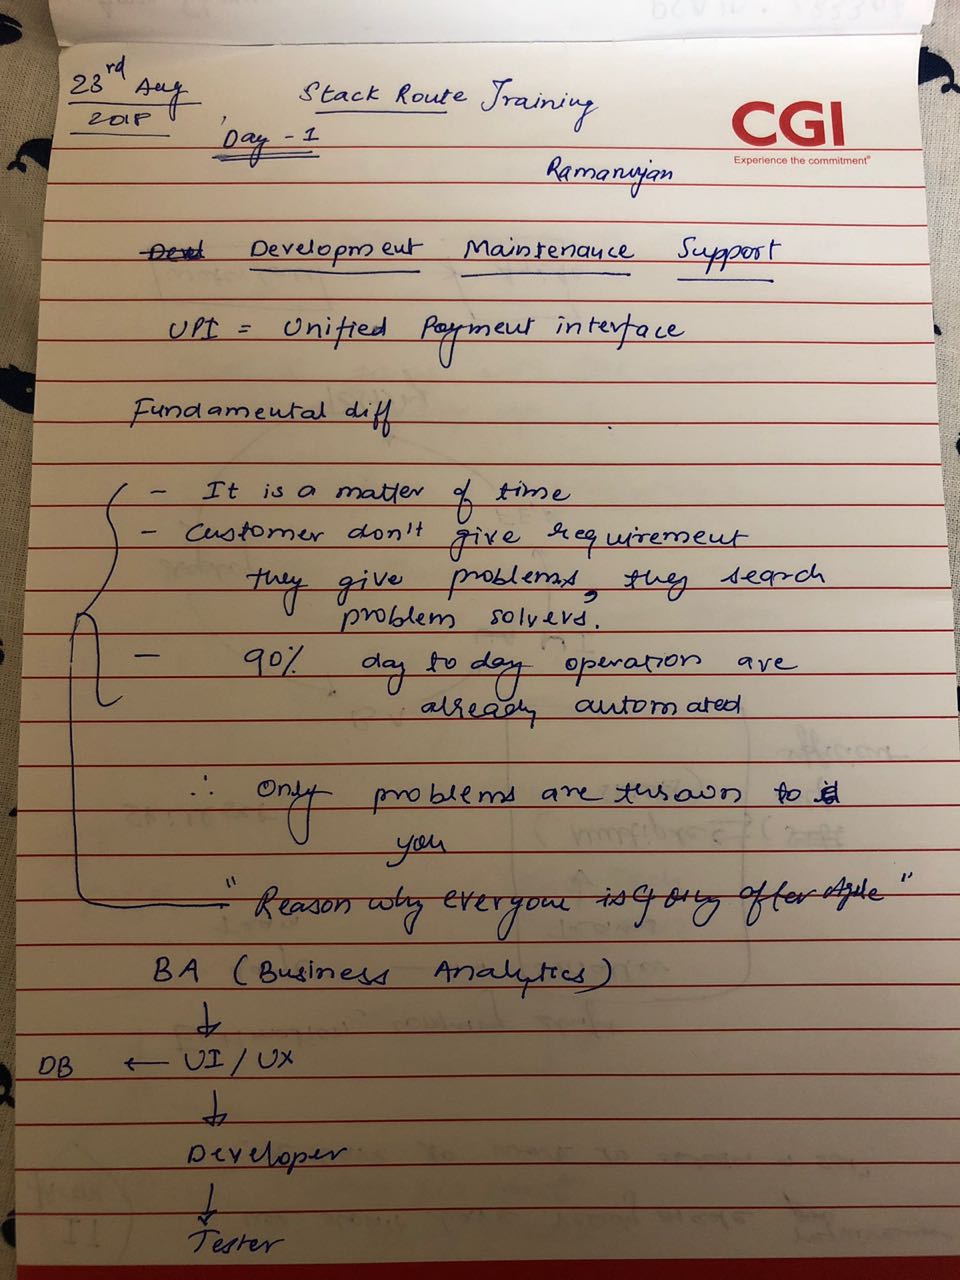 23rd Aug
2018
Stack Route Training
Day - 1
CGI
Experience the commitment®
Ramanujan
Devel Development Maintenance Support
UPI = Unified Payment interface
Fundamental diff
- It is a matter of time
- Customer don't give requirement
they give problems, they search
problem solvers.
- 90% day to day operation are
already automated
∴ Only problems are thrown to
you
"Reason why everyone is going after Agile"
BA (Business Analytics)
↓
DB ← UI / UX
↓
Developer
↓
Tester